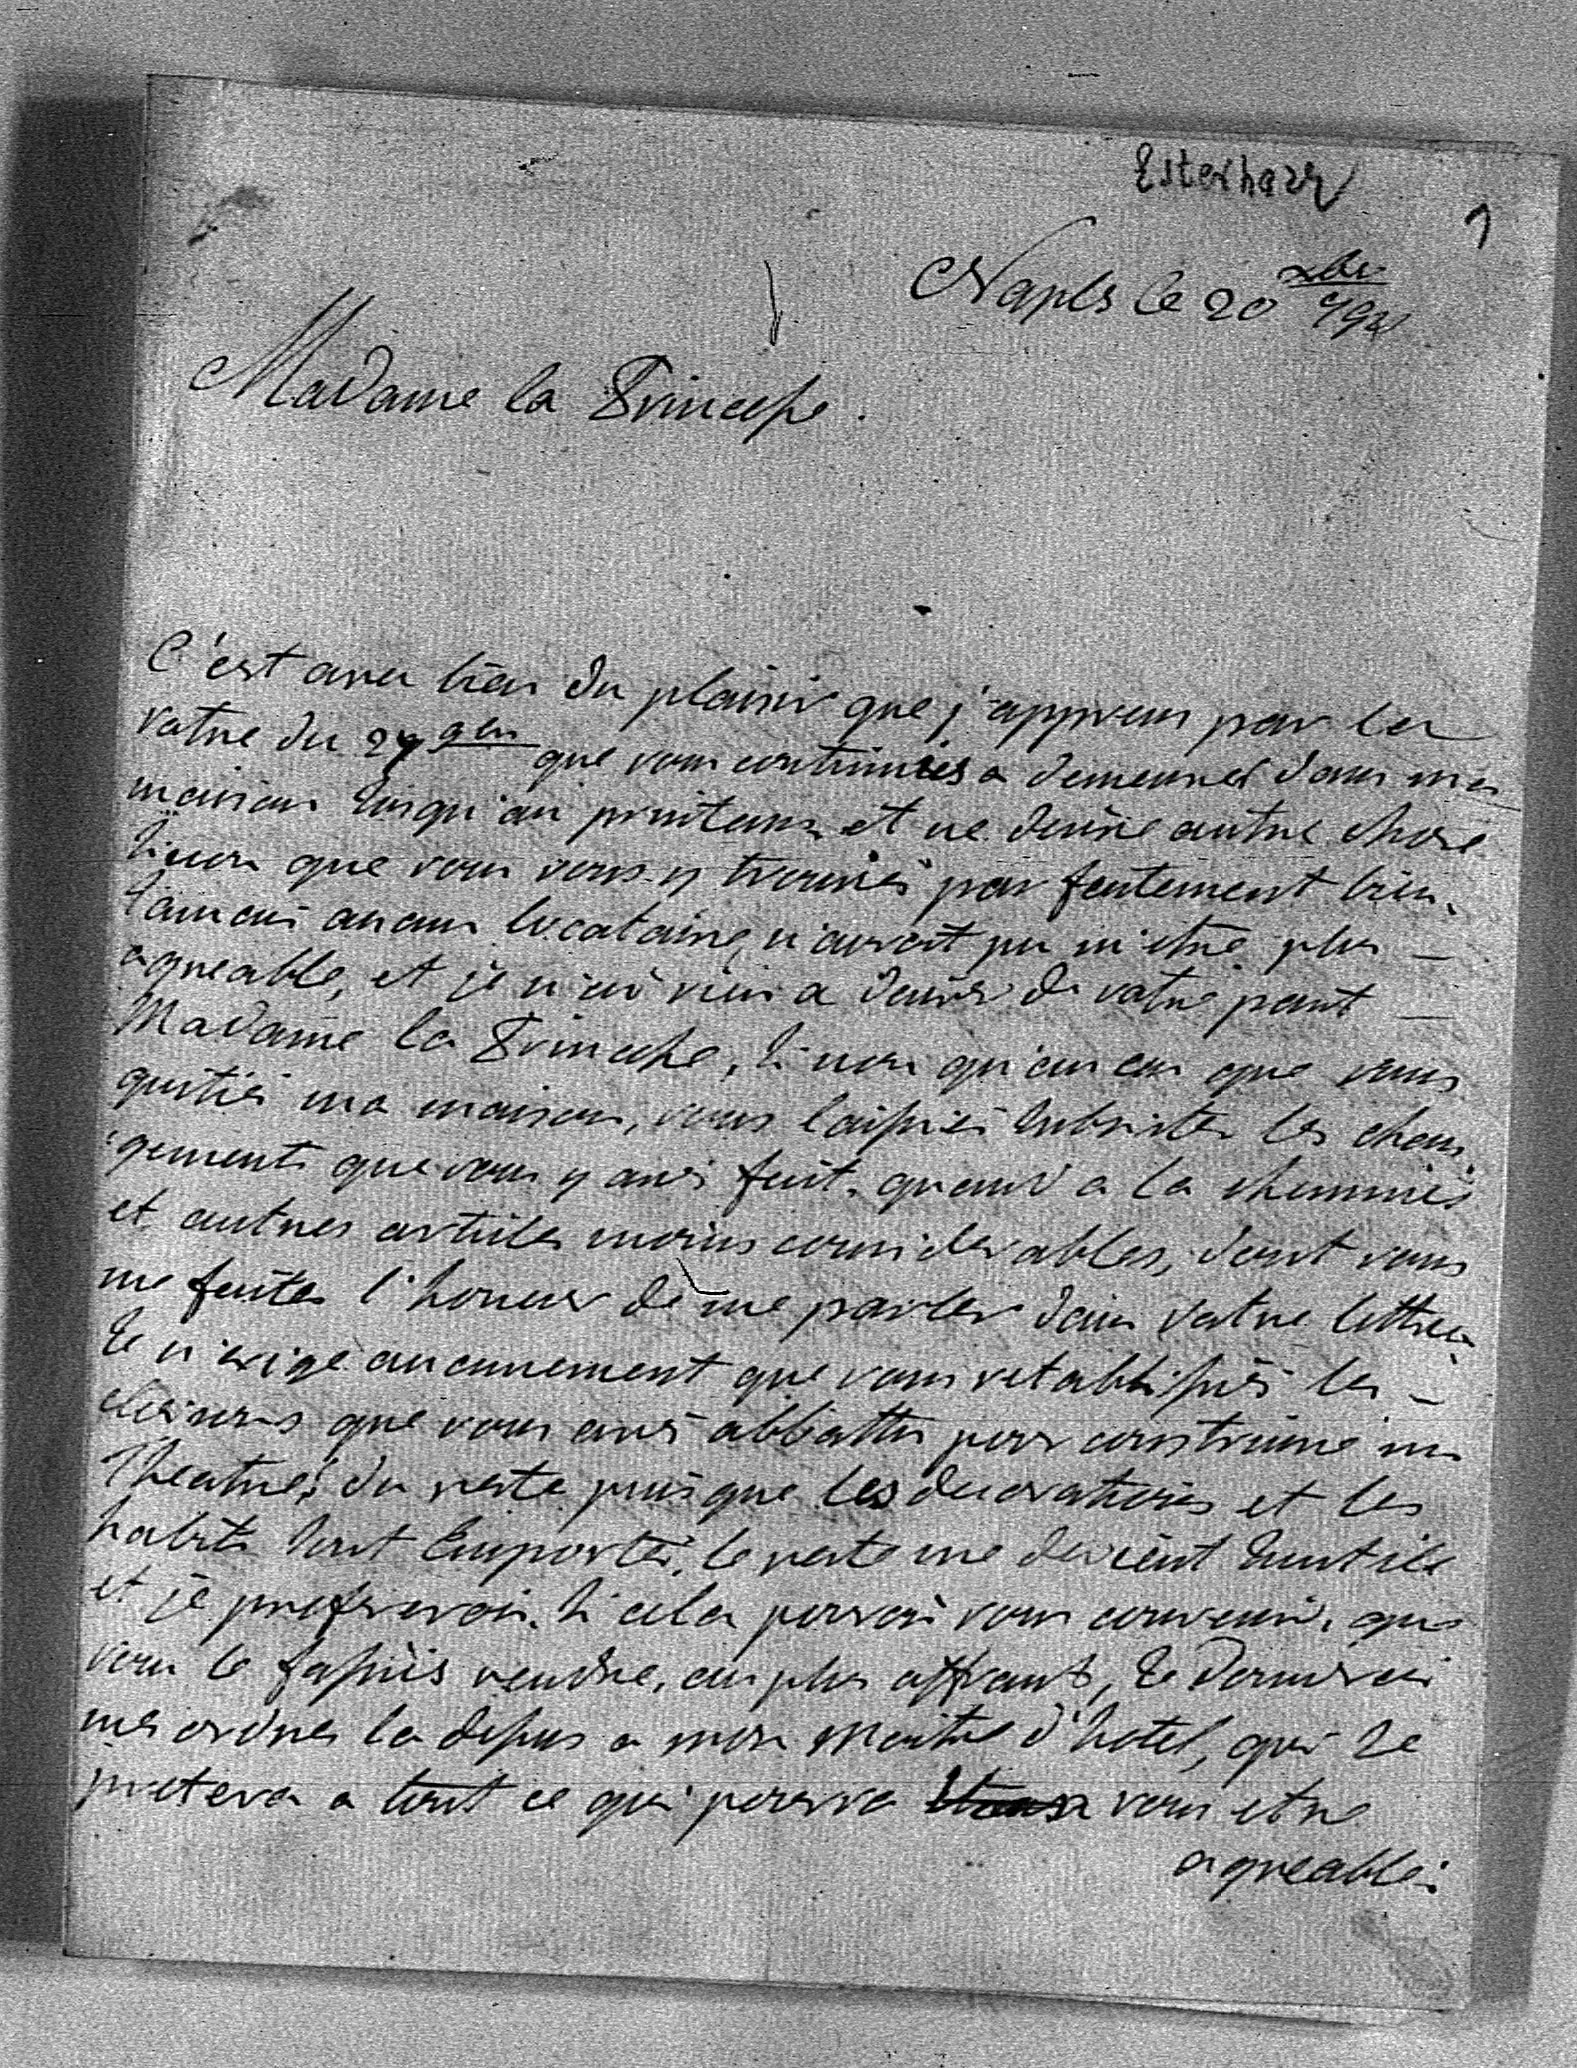 Esterhazy
1
Naples le 20 xbre 792
Madame la Princesse.
C'est avec bien du plaisir que j'apprens par la
votre du 27 9bre que vous continuiés a demeurer dans ma
maison jusqu'au printems et ne desire autre chose
sinon que vous vous y trouviés parfaitement bien.
Jamais aucun locataire n'auroit pu m'etre plus
agreable, et je n'ai rien a desirer de votre part
Madame la Princesse, sinon qu'au cas que vous
quitiés ma maison, vous laissiés subsister les chan-
gements que vous y avés fait, quand a la cheminés
et autres articles moins considerables, dont vous
me faites l'honeur de me parler dans votre lettre
Je n'exige aucunement que vous retablissiés les
cloisons que vous avés abbattu pour construire un
Theatre, du reste puisque les decorations et les
habits sont Emportés, le reste me devient inutile
et je prefererois, si cela pouvoit vous convenir, que
vous le fassiés vendre, au plus offrant, Je donnerai
mes ordres la dessus a mon Maitre d'hotel, qui se
pretera a tout ce qui pourra vous etre
agreable.